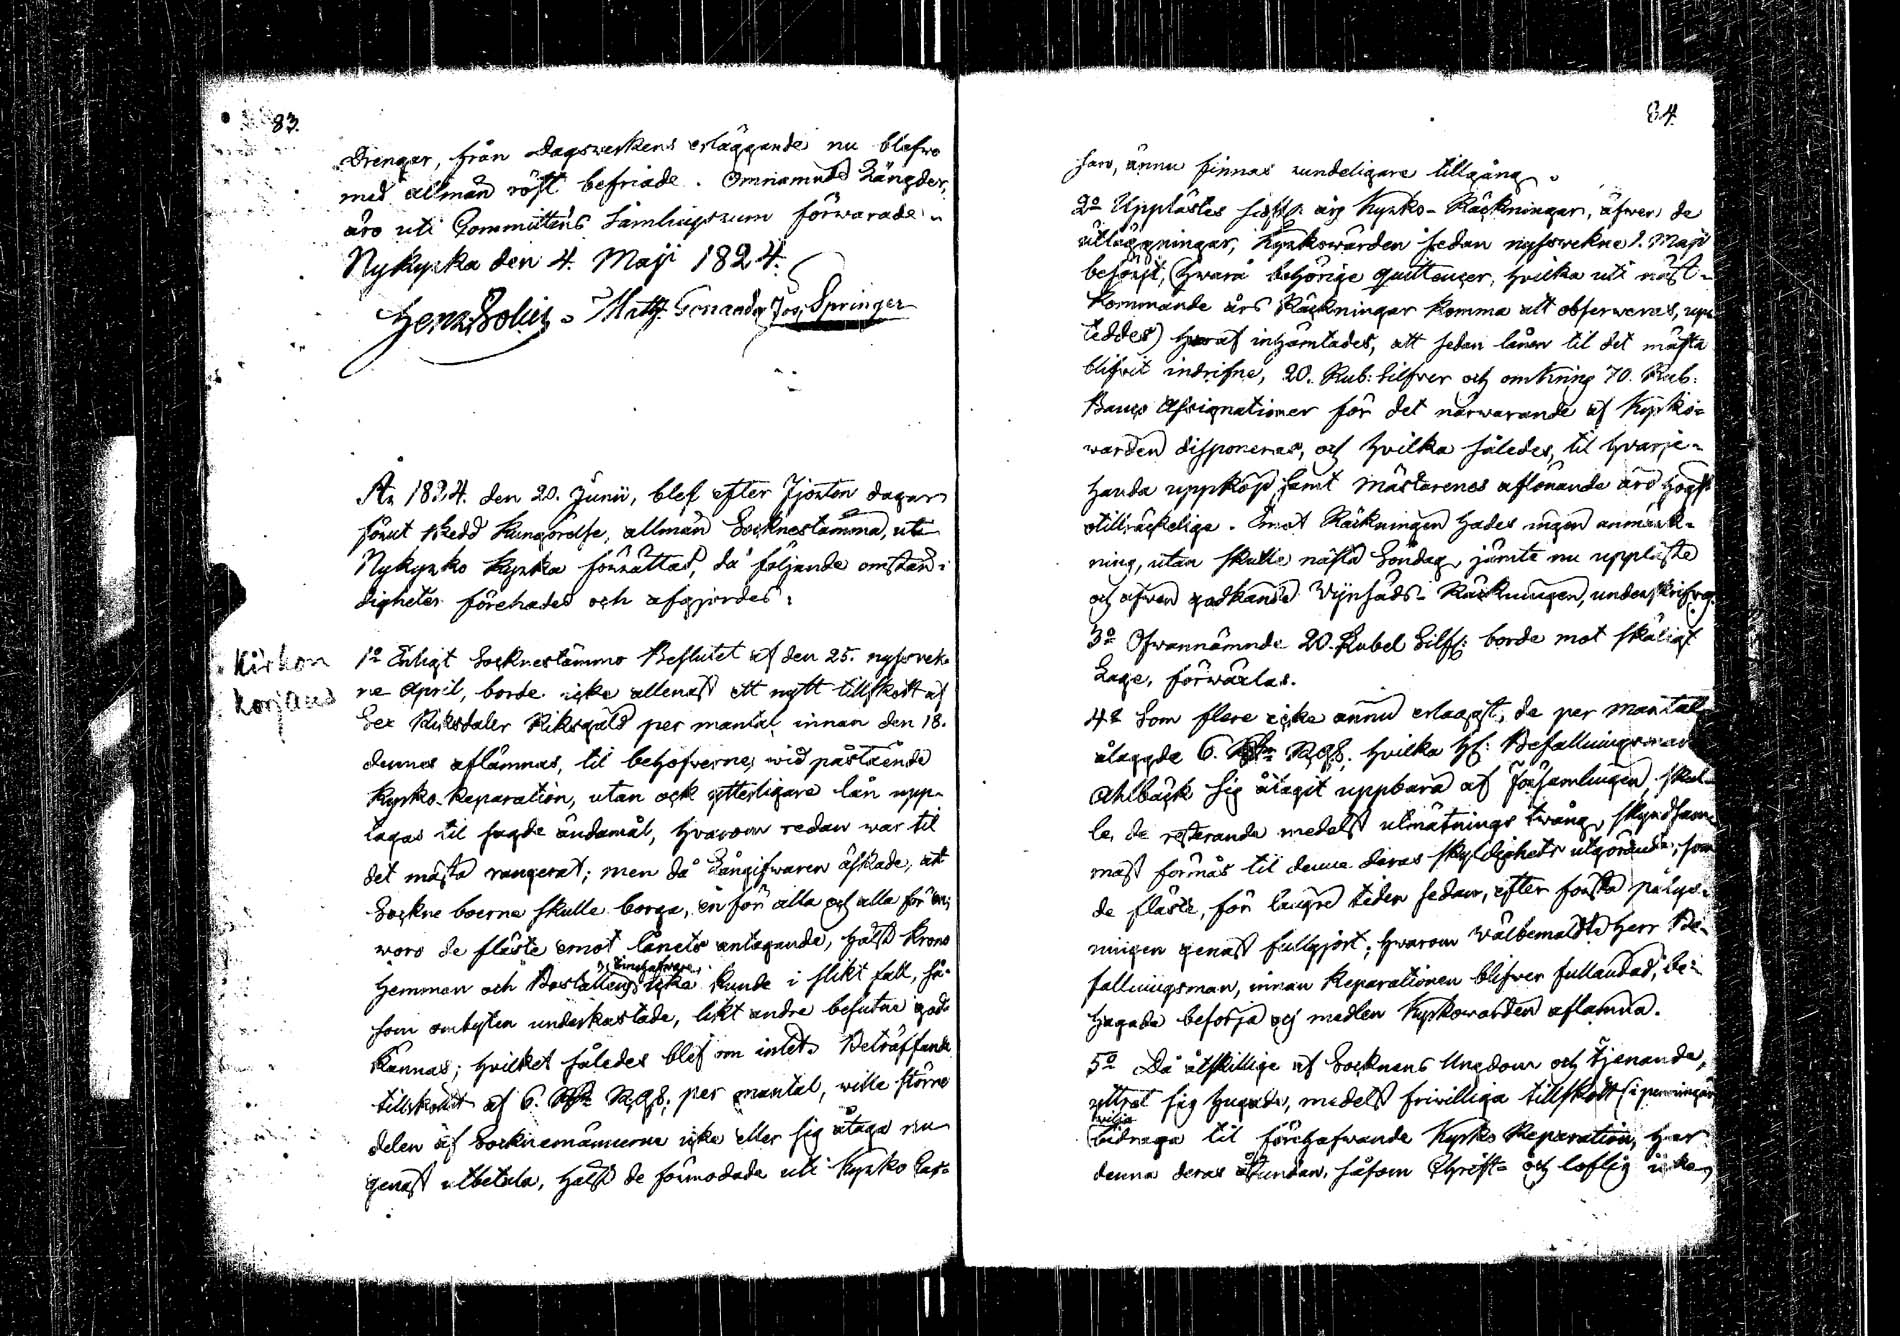 83.
Drengar, från Dagswerkens erläggande nu blefwo
med allmän röst befriade. Omnämnde Längder,
äro uti Committens Samlingsrum förwarade.
Nykyrka den 4. Maji 1824.
Henr. Math. Jos. Springer
År 1824. den 20. Junii, blef efter Fjorton dagar
förut skedd Kungörelse, allmän Socknestämma, uti
Nykyrko Kyrka förrättad, då följande omstän-
digheter förehades och afgjordes:
Kirkon
korjaus
1º Enligt Socknestämmo Beslutet af den 25. nyssvek-
ne April, borde icke allenast ett nytt tillskott af
Sex Riksdaler Riksgäld per mantal innan den 18.
dennes aflämnas, til behofwerne wid påstående
Kyrko-Reparation, utan ock ytterligare lån upp-
tagas til sagde ändamål, hvarom redan war til
det mästa rangerat; men då Långifwaren äskade, att
Sockne boerne skulle borga, en för alla och alla för en;
woro de fläste emot lånets antagande, hälst Krono
Hemman och Boställens Innehafware icke kunde i slikt fall, så-
som ombyten underkastade, likt andre besutne gode
kännas; hvilket således blef om intet. Beträffande
tillskottet af 6. Rdr RGs. per mantal, wille större
delen af Socknemännerne icke eller sig åtaga nu
genast utbetala, hälst de förmodade uti Kyrko Cas-
84.
san, ännu finnas runдeligare tillgång.
2º Upplästes sistl. års Kyrko-Räckningar, äfwen de
utläggningar, Kyrkowärden sedan nyssvekne 1. Maji
besörjt, (hwarå behörige quittencer, hvilka uti näst-
kommande års Räckningar komma att observeras, upp-
teddes) hwaraf inhämtades, att sedan lånen til det mästa
blifvit indrifne, 20. Rub: Silfver och omkring 70. Rub:
Banco Assignationer för det närwarande af Kyrko-
wärden disponeras, och hvilka således, til hvarje-
handa uppköp samt Mästarenes aflönande äro högst
otillräckelige. Emot Räckningen hades ingen anmärk-
ning, utan skulle nästa Söndag, jämte nu uppläste
och äfwen godkände Wijnsäds-Räckningen, underskrifvas.
3º Ofwannämnde 20. Rubel Silf: borde mot skäligt
Lage, förwäxlas.
4º Som flere icke ännu erlaggt, de per Mantal
ålaggde 6. Rdr RGs. hvilka H: Befallningsman
Ahlbäck sig åtagit uppbära af Församlingen, skul-
le, de resterande medelst utmätnings twång, skyndsam-
mast förmås til denne deras skyldighets utgörande, som
de fläste, för längre tiden sedan, efter första pålys-
ningen genast fullgjort; hwarom Wälbemäldte Herr Be-
fallningsman, innan Reparationen blifver fulländad, be-
hagade besörja och medlen Kyrkowärden aflämna.
5º Då åtskillige af Socknens Ungdom och Tjenande,
yttrat sig hugade, medelst frivilliga tillskott (i penningar)
wilja
bidraga til förehafwande Kyrko Reparation, har
denna deras åstundan, såsom Christ- och loflig icke